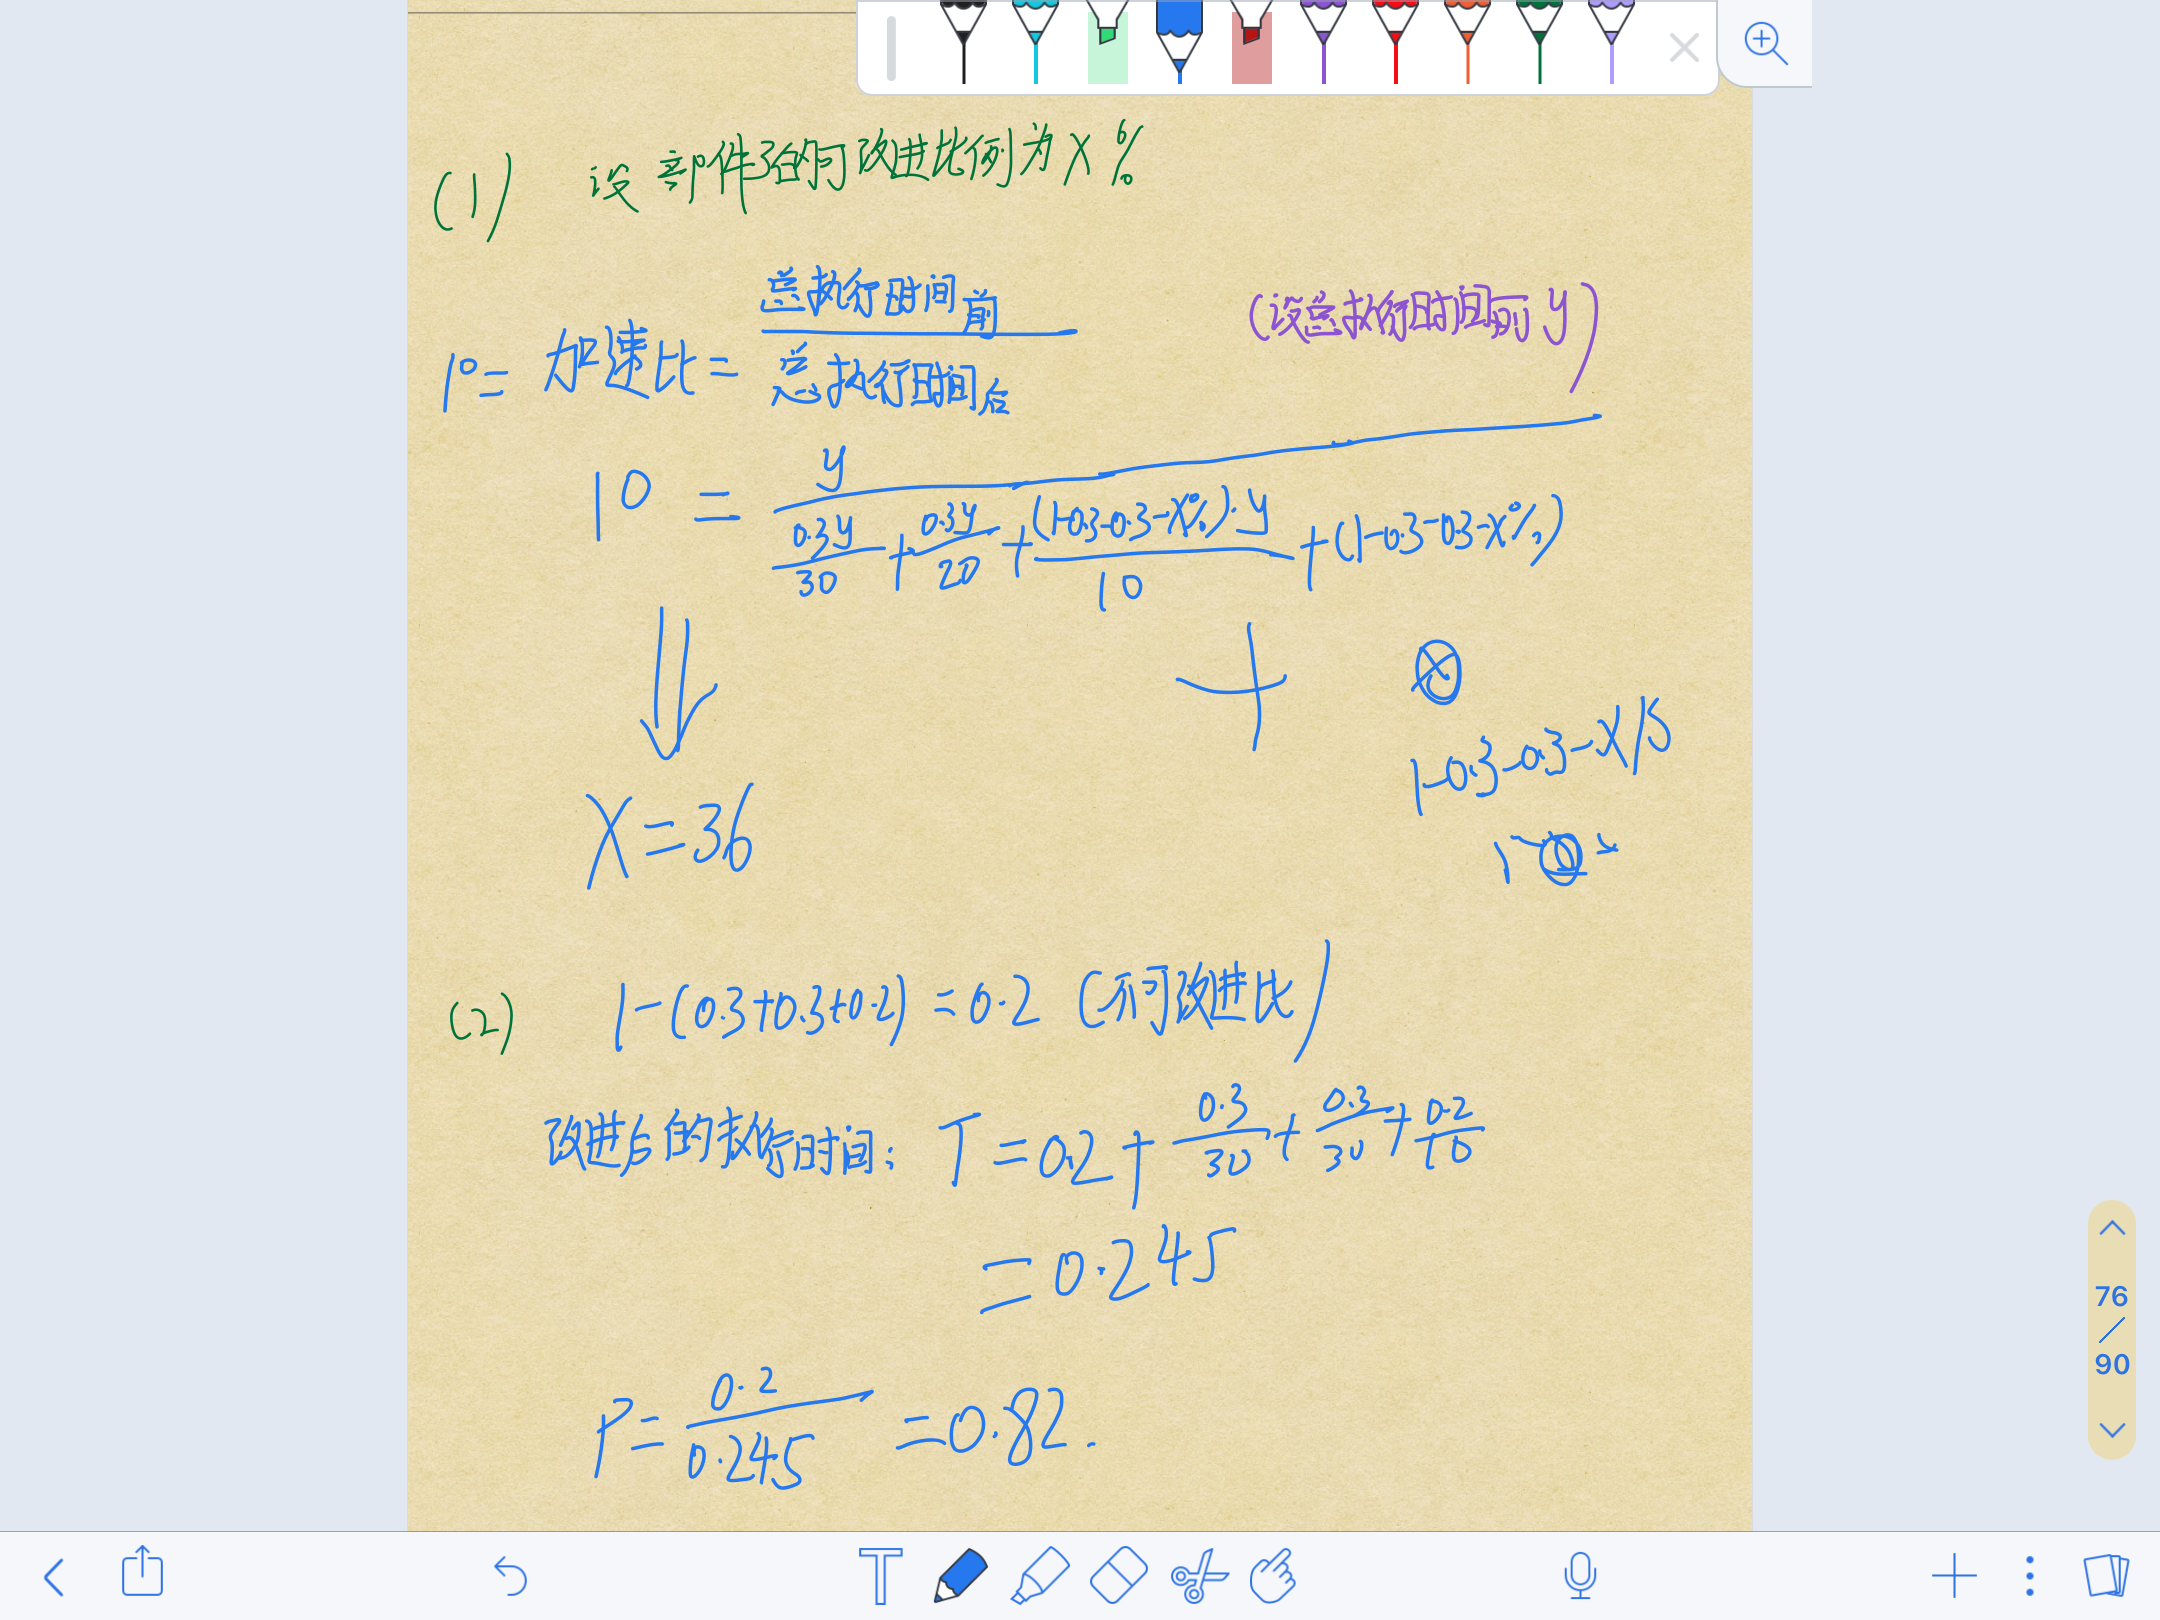 (1) 设部件3的可改进比例为X%
总执行时间前
(设总执行时间前y)
10= 加速比=
总执行时间后
10 = y
0.3y/30 + 0.3y/20 + (1-0.3-0.3-X%)·y/10 + (1-0.3-0.3-X%)
+
1-0.3-0.3-X/5
X=36
(2) 1-(0.3+0.3+0.2)=0.2 (不可改进比)
改进后的执行时间: T=0.2+0.3/30+0.3/30+0.2/10
=0.245
P=0.2/0.245=0.82.
76
/
90